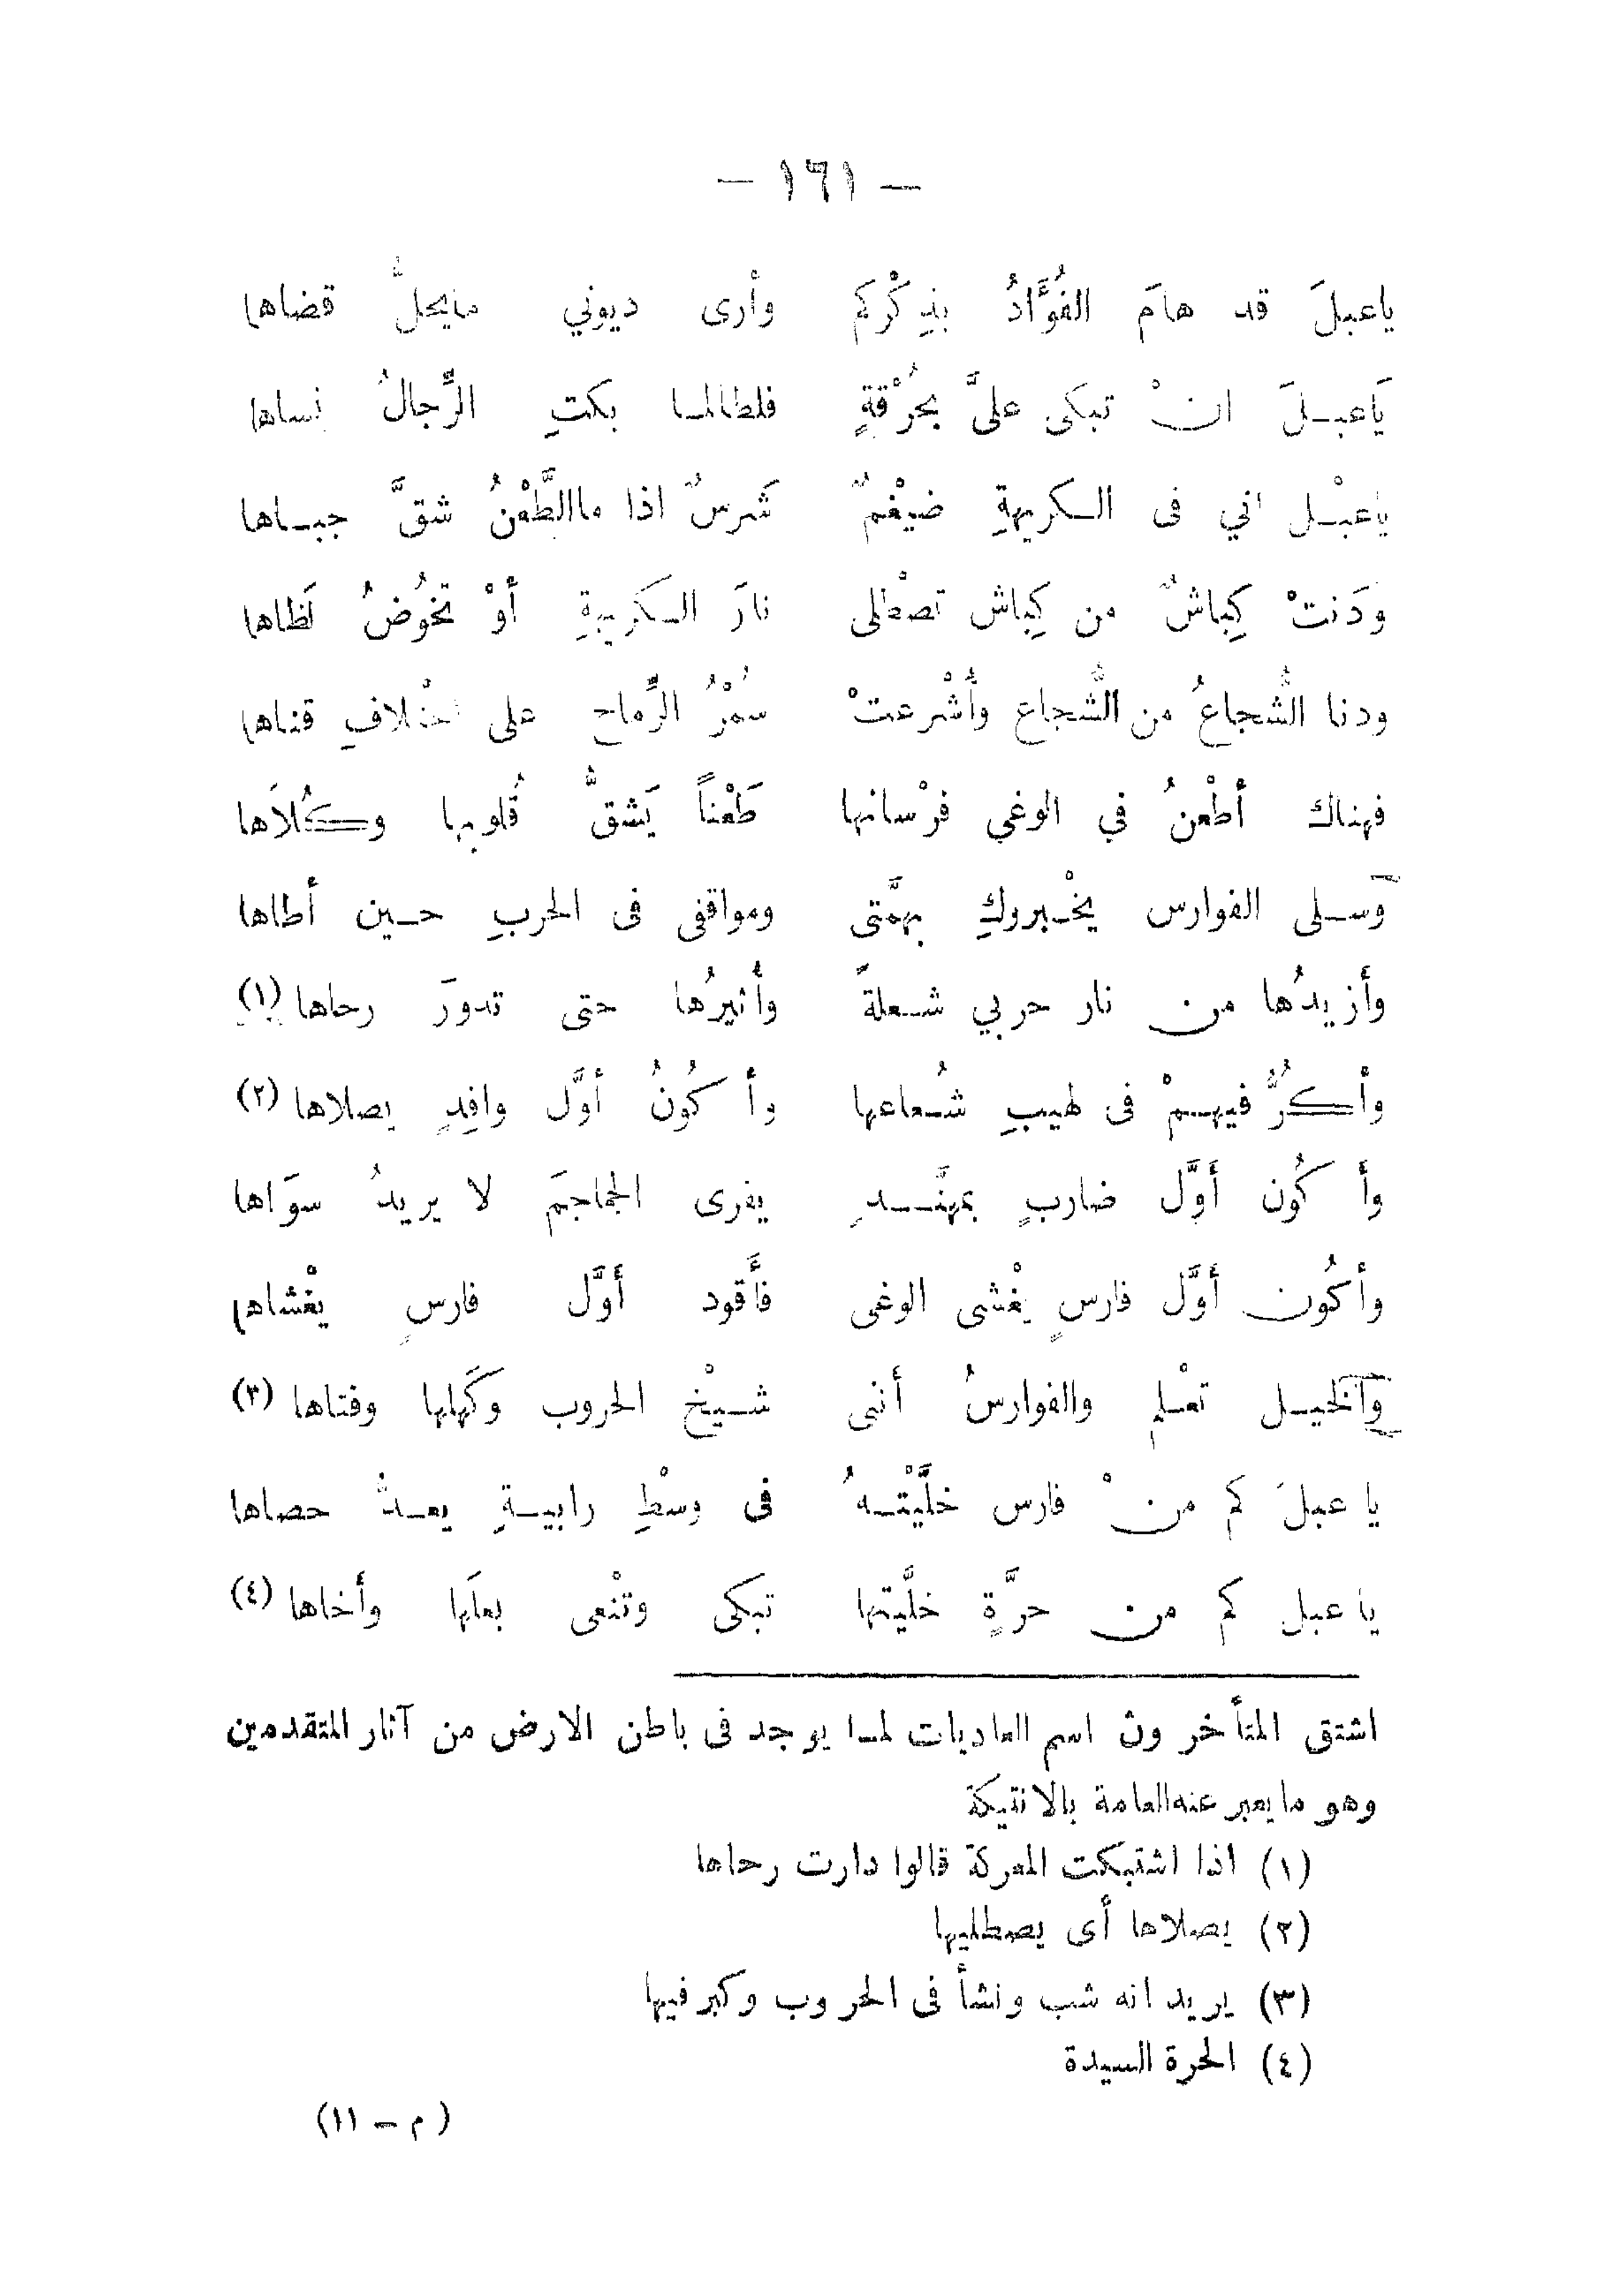 — ١٦١ —
ياعبلَ قد هامَ الفُؤَادُ بذِكْركم وأرى ديوني مايحلُّ قضاها
يَاعبـلَ انْ تبكى علىَّ بحُرْقةٍ فلطالمـا بكتِ الرِّجالُ نساها
ياعبْـل اني فى الـكريهةِ ضيْغمٌ شَرسٌ اذا ماالطَّعْنُ شقَّ جبـاها
وَدَنتْ كِباشٌ من كِباش تصْطلى نارَ الـكريهةِ أوْ تخوُضُ لَظاها
ودنا الشُّجاعُ من الشُّجاع وأُشْرعتْ سُمْرُ الرِّماح على اخْتلافِ قناها
فهناك أطْعنُ في الوغي فرْسانها طَعْناً يَشقُّ قُلوبها وكُلاَها
وسـلى الفوارس يخْـبروكِ بهمَّتى ومواقفى فى الحربِ حـين أطاها
وأزيدُها من نار حربي شـعلةً وأُثيرُها حتى تدورَ رحاها (١)
وأكُرُّ فيهـمْ فى لهيبِ شُـعاعها وأكُونُ أوَّل وافِدٍ يصلاها (٢)
وأكُون أوَّل ضاربٍ بمهنَّـدٍ يفرى الجماجمَ لا يريدُ سوَاها
وأكُون أوَّل فارسٍ يغْشى الوغى فأَقود أوَّل فارسٍ يغْشاها
وَالخيـل تعْـلم والفوارسُ أننى شـيْخ الحروب وكَهلها وفتاها (٣)
يا عبلَ كم منْ فارس خلَّيْتـهُ فى وسْطِ رابيـةٍ يعـدُّ حصاها
يا عبل كم من حرَّةٍ خلَّيتها تبكى وتْنعى بعلَها وأخاها (٤)
اشتق المتأخرون اسم العاديات لمـا يوجد فى باطن الارض من آثار المتقدمين
وهو مايعبر عنه العامة بالانتيكة
(١) اذا اشتبكت المعركة قالوا دارت رحاها
(٢) يصلاها أى يصطليها
(٣) يريد انه شب ونشأ فى الحروب وكبر فيها
(٤) الحرة السيدة
(م – ١١)